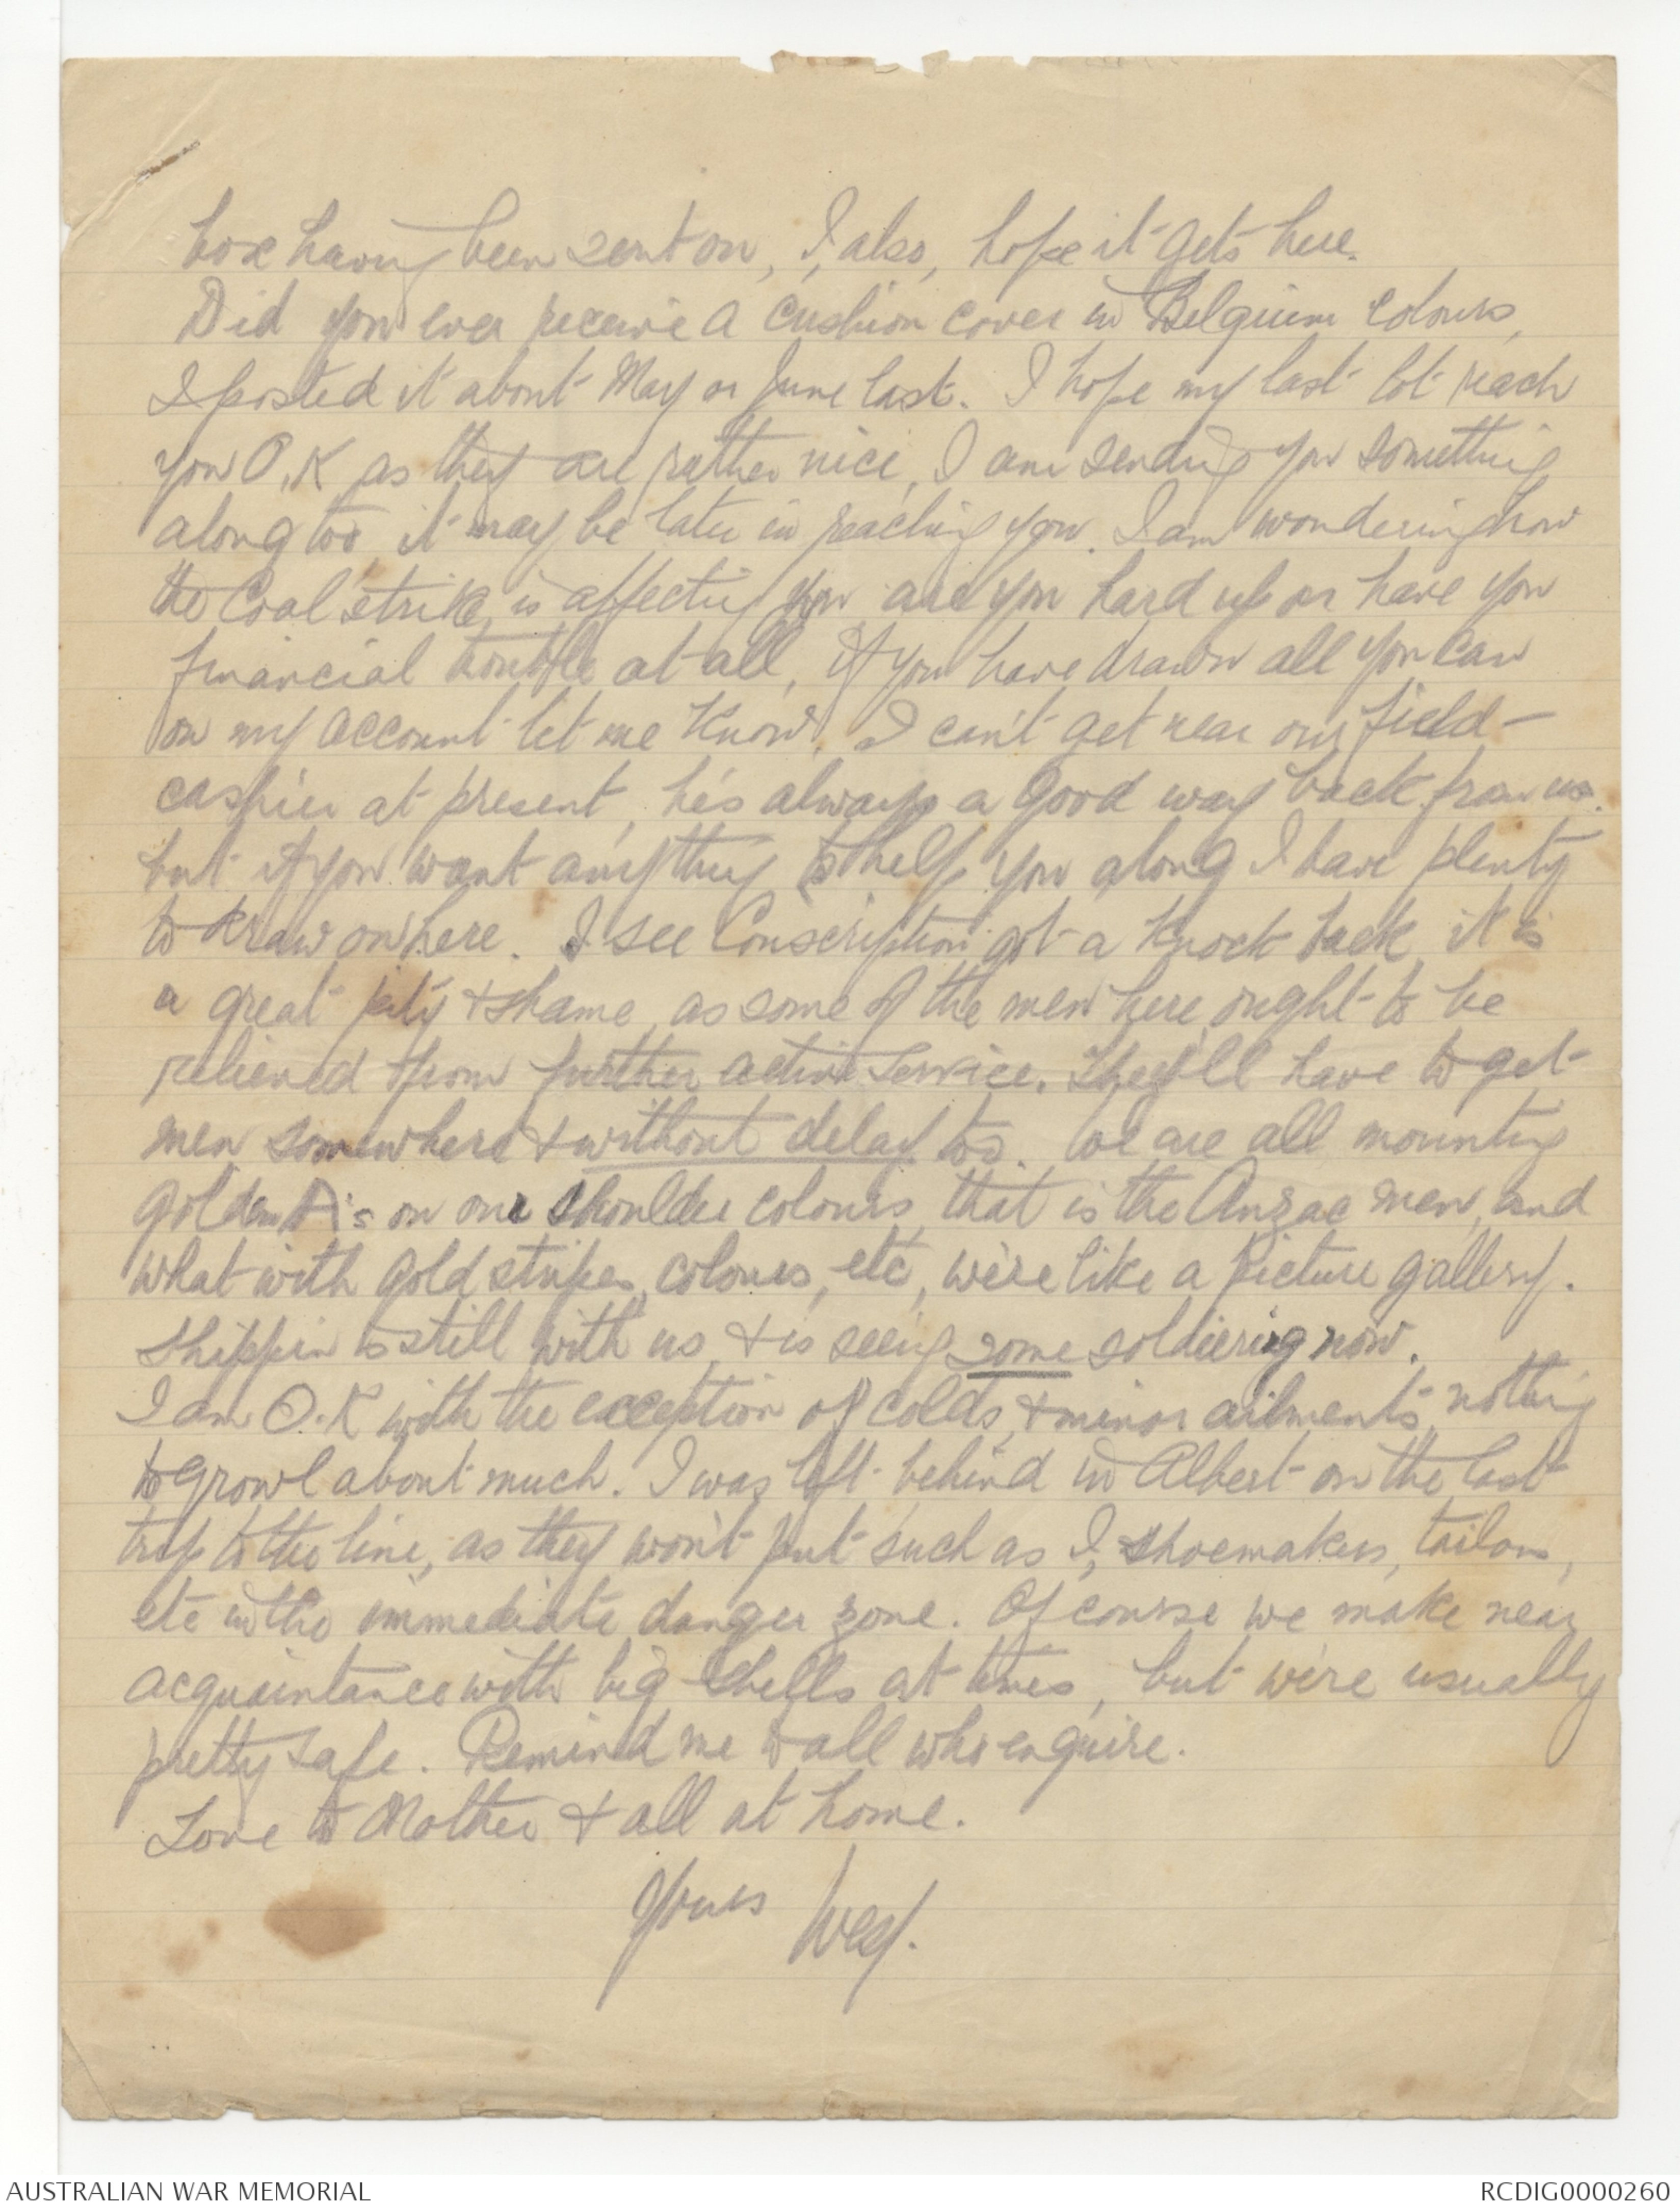 box having been sent on, I, also, hope it gets here.
Did you ever receive a cushion cover in Belgium colours,
I posted it about May or June last. I hope my last lot reach
you O.K as they are rather nice, I am sending you something
along too it may be later in reaching you. I am wondering how
the Coal strike, is affecting you are you hard up or have you
financial trouble at all, if you have drawn all you can
on my account let me know, I can't get near our field-
cashier at present, he's always a good way back from us.
but if you want anything to help you along I have plenty
to draw on here. I see Conscription got a knock back it is
a great pity & shame, as some of the men here ought to be
relieved from further active service. They'll have to get
men somewhere & without delay too. We are all mounting
golden A's on our shoulder colours, that is the Anzac men, and
what with gold stripes, colours, etc, we're like a picture gallery.
Shippin is still with us, & is seeing some soldiering now.
I am O.K with the exception of colds, & minor ailments nothing
to growl about much. I was left behind in Albert on the last
trip to the line, as they won't put such as I, shoemakers, tailors,
etc in the immediate danger zone. Of course we make near
acquaintance with big shells at times, but we're usually
pretty safe. Remind me to all who enquire.
Love to Mother & all at home.
Yours Wes.
AUSTRALIAN WAR MEMORIAL
RCDIG0000260